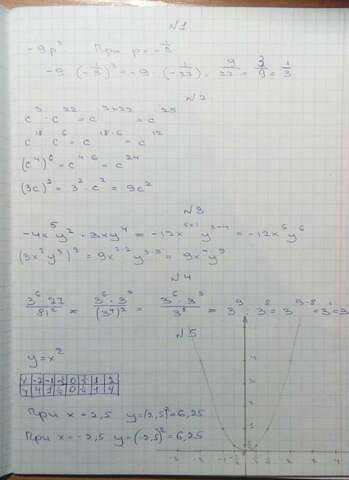 №1
-9p³ При p = -1/3
-9 · (-1/3)³ = -9 · (-1/27) = 9/27 = 3/9 = 1/3
№2
c³ · c²² = c³⁺²² = c²⁵
c¹⁸ : c⁶ = c¹⁸⁻⁶ = c¹²
(c⁴)⁶ = c⁴·⁶ = c²⁴
(3c)² = 3² · c² = 9c²
№3
-4x⁵y² · 3xy⁴ = -12x⁵⁺¹y²⁺⁴ = -12x⁶y⁶
(3x²y³)² = 9x²·²y³·² = 9x⁴y⁹
№4
3⁶·27/81² = 3⁶·3³/(3⁴)² = 3⁶·3³/3⁸ = 3⁹ : 3⁸ = 3⁹⁻⁸ = 3¹ = 3
№5
y = x²
x -2 -1 0 1 2
y 4 1 0 1 4
При x = 2,5 y = (2,5)² = 6,25
При x = -2,5 y = (-2,5)² = 6,25